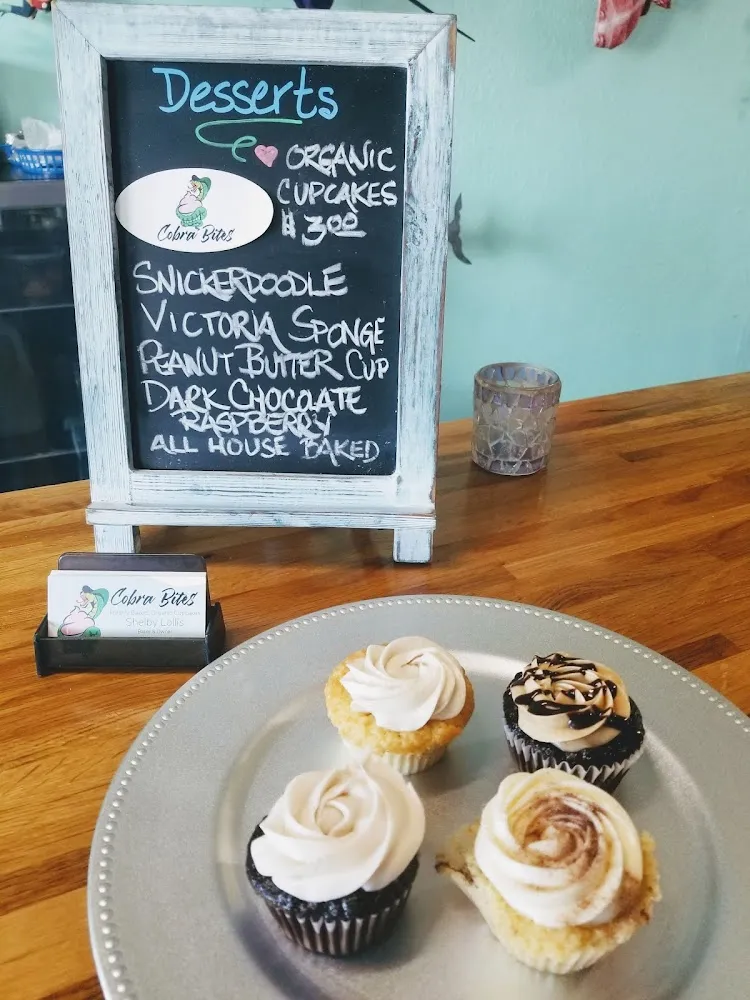 Desserts
ORGANIC
CUPCAKES
$3.00
Cobra Bites
SNICKERDOODLE
VICTORIA SPONGE
PEANUT BUTTER CUP
DARK CHOCOATE
RASPBERRY
ALL HOUSE BAKED
Cobra Bites
Shelby Lollis